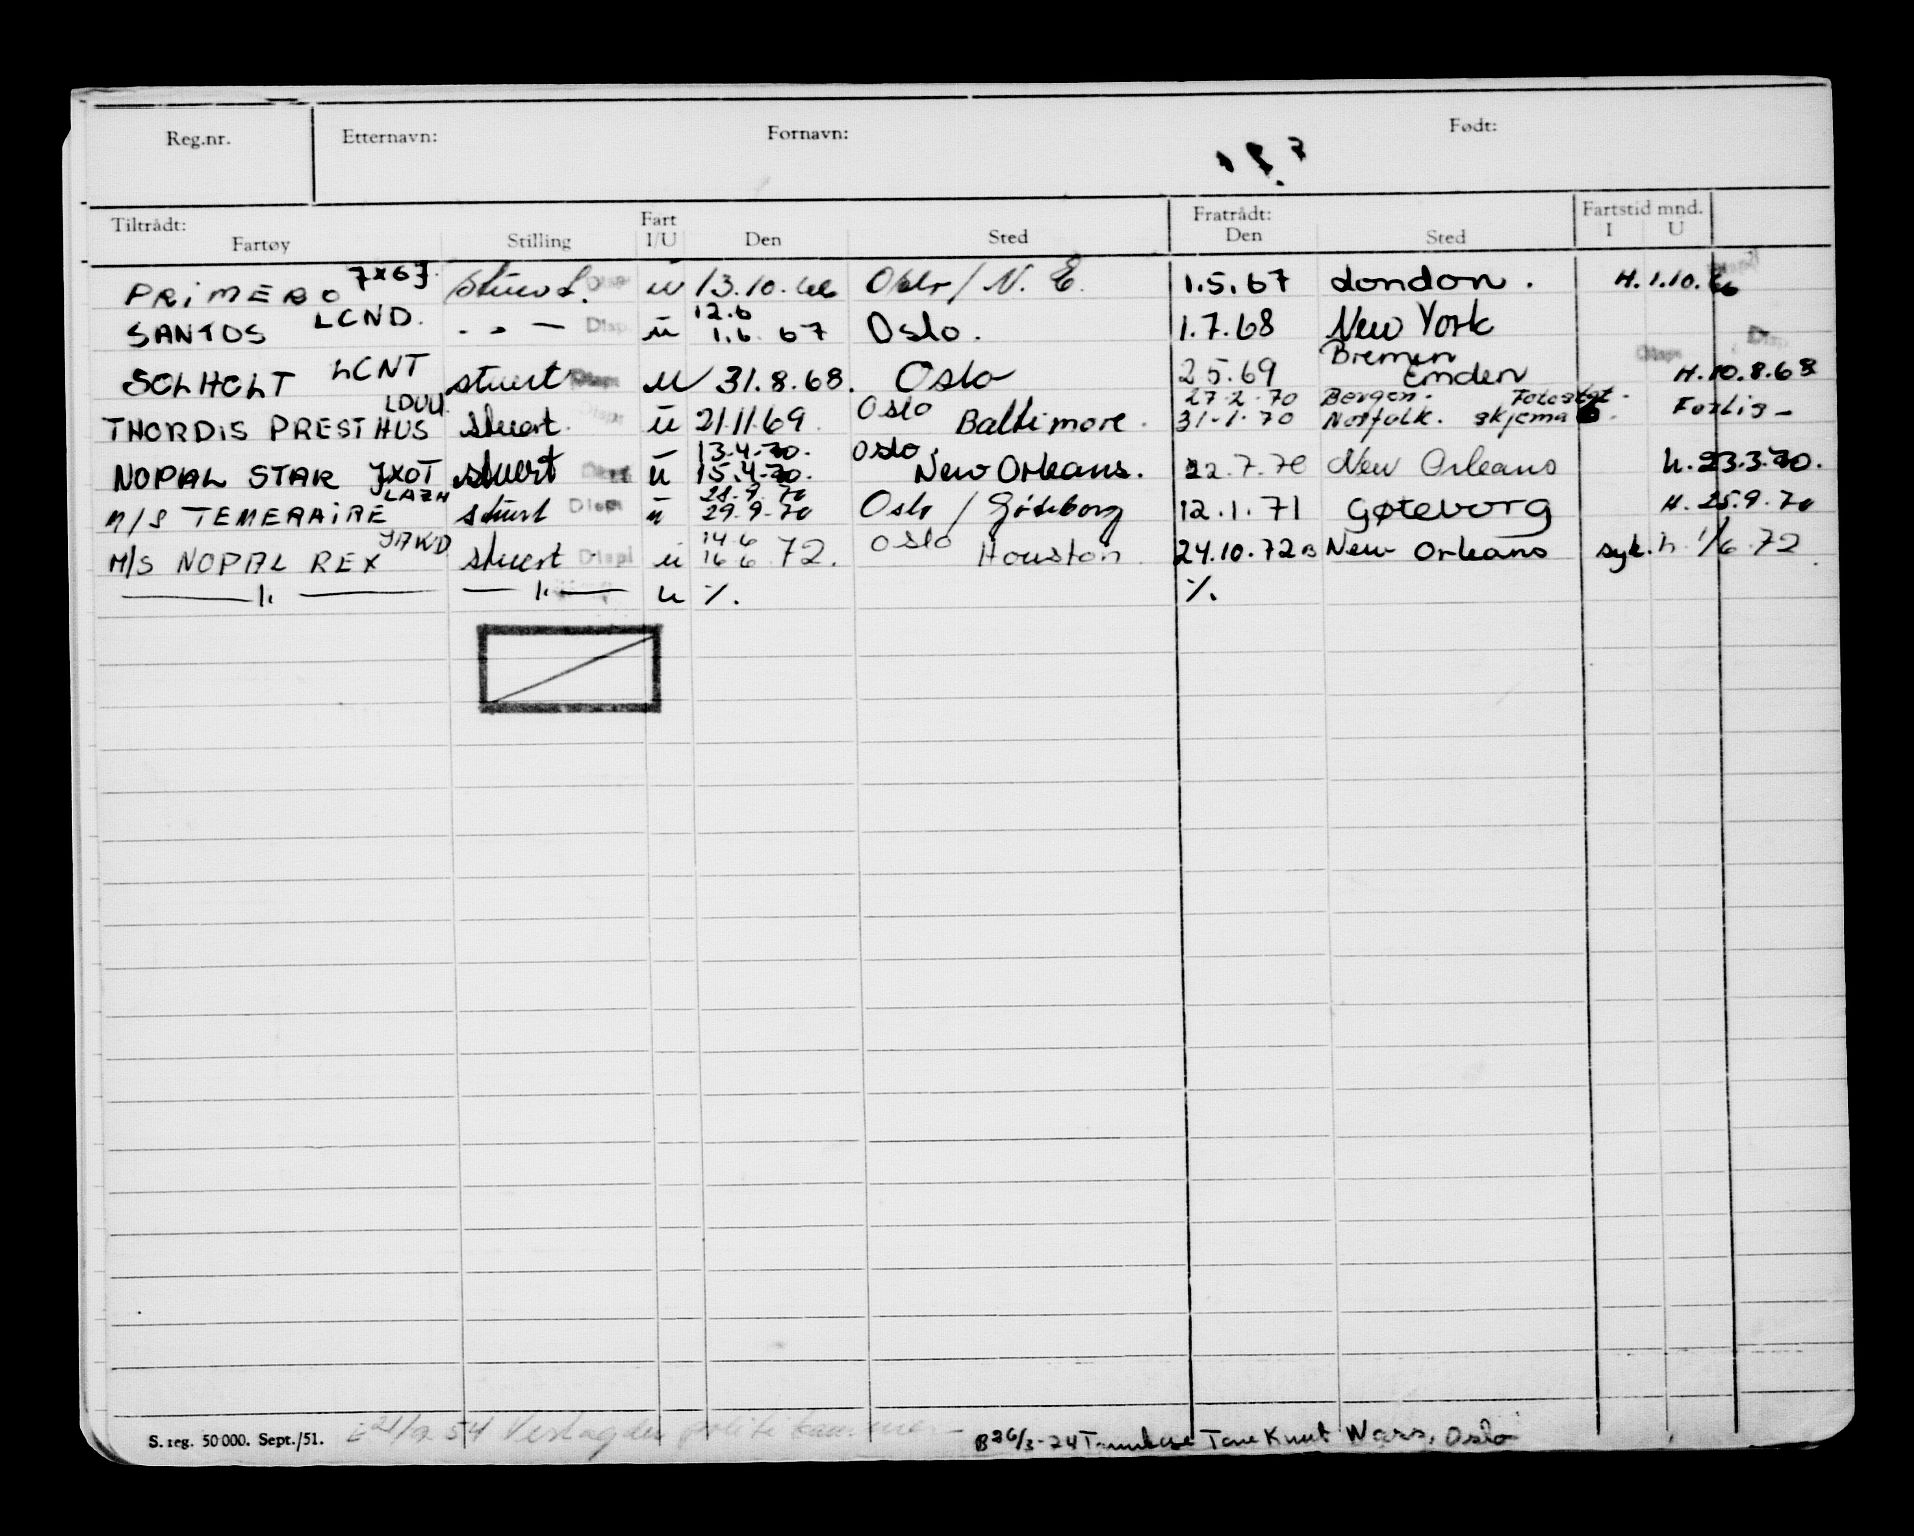 Reg.nr. Etternavn: Fornavn: Født:
Tiltrådt: Fartøy Stilling Fart I/U Den Sted Fratrådt: Den Sted Fartstid mnd. I U
PRIMERO 7x67 stuert. Disp u 13.10.66 Oslo / N. E. 1.5.67 London. H. 1.10.66
SANTOS LCND. - " - Disp. u 12.6 1.6.67 Oslo. 1.7.68 New York
SOLHOLT LCNT stuert Disp u 31.8.68. Oslo 25.69 Bremen Emden H. 10.8.68
THORDIS PRESTHUS LDUU stuert. Disp. u 21.11.69. Oslo Baltimore. 27.2.70 31-1-70 Bergen. Norfolk. skjema Forlis-
NOPAL STAR JXOT stuert Disp u 13.4.70. 15.4.70. Oslo. New Orleans. 22.7.70 New Orleans h. 23.3.70.
M/S TEMERAIRE LAZH stuert Disp u 28.9.70 29.9.70 Oslo / Göteborg 12.1.71 Gøteborg H. 25.9.70
M/S NOPAL REX JAKD stuert Displ u 14.6 16.6.72. Oslo Houston. 24.10.72 New Orleans syk. h. 1/6.72
— " — — " — u ./. ./.
S. reg. 50 000. Sept./51. B 26/3-24 Tone Knut Wars, Oslo